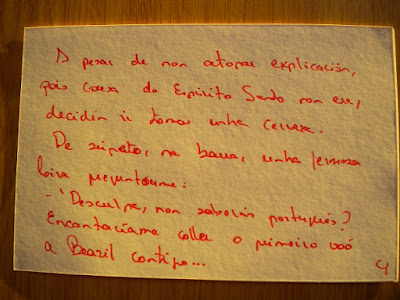 A pesar de non atopar explicación,
pois cousa do Espírito Santo non era,
decidín ir tomar unha cervexa.
De súpeto, na barra, unha fermosa
loira preguntoume:
- 'Desculpa, non saberás portugués?
Encantaríame coller o primeiro voo
a Brazil contigo...
4